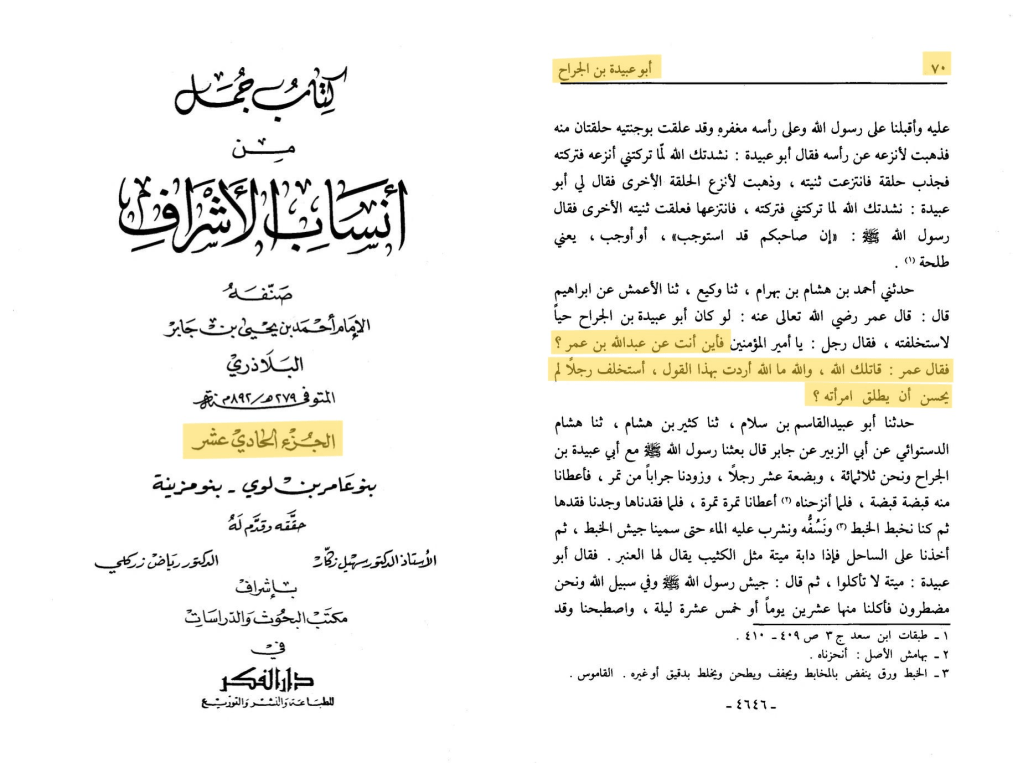 كتاب جمل
من
أنساب الأشراف
صنّفه
الإمام أحمد بن يحيى بن جابر
البلاذري
المتوفى ٢٧٩هـ/٨٩٢م
الجزء الحادي عشر
بنو عامر بن لوي - بنو مزينة
حققه وقدم له
الأستاذ الدكتور سهيل زكار الدكتور رياض زركلي
بإشراف
مكتب البحوث والدراسات
في
دار الفكر
للطباعة والنشر والتوزيع
٧٠ أبو عبيدة بن الجراح
عليه وأقبلنا على رسول الله وعلى رأسه مغفره وقد علقت بوجنتيه حلقتان منه
فذهبت لأنزعه عن رأسه فقال أبو عبيدة : نشدتك الله لمّا تركتني أنزعه فتركته
فجذب حلقة فانتزعت ثنيته ، وذهبت لأنزع الحلقة الأخرى فقال لي أبو
عبيدة : نشدتك الله لما تركتني فتركته ، فانتزعها فعلقت ثنيته الأخرى فقال
رسول الله ﷺ : «إن صاحبكم قد استوجب» ، أو أوجب ، يعني
طلحة (١) .
حدثني أحمد بن هشام بن بهرام ، ثنا وكيع ، ثنا الأعمش عن ابراهيم
قال : قال عمر رضي الله تعالى عنه : لو كان أبو عبيدة بن الجراح حياً
لاستخلفته ، فقال رجل : يا أمير المؤمنين فأين أنت عن عبدالله بن عمر ؟
فقال عمر : قاتلك الله ، والله ما الله أردت بهذا القول ، أستخلف رجلاً لم
يحسن أن يطلق امرأته ؟
حدثنا أبو عبيدالقاسم بن سلام ، ثنا كثير بن هشام ، ثنا هشام
الدستوائي عن أبي الزبير عن جابر قال بعثنا رسول الله ﷺ مع أبي عبيدة بن
الجراح ونحن ثلاثمائة ، وبضعة عشر رجلاً ، وزودنا جراباً من تمر ، فأعطانا
منه قبضة قبضة ، فلما أنزحناه (٢) أعطانا تمرة تمرة ، فلما فقدناها وجدنا فقدها
ثم كنا نخبط الخبط (٣) ونَسُفُّه ونشرب عليه الماء حتى سمينا جيش الخبط ، ثم
أخذنا على الساحل فإذا دابة ميتة مثل الكثيب يقال لها العنبر . فقال أبو
عبيدة : ميتة لا تأكلوا ، ثم قال : جيش رسول الله ﷺ وفي سبيل الله ونحن
مضطرون فأكلنا منها عشرين يوماً أو خمس عشرة ليلة ، واصطبحنا وقد
١ - طبقات ابن سعد ج ٣ ص ٤٠٩ - ٤١٠ .
٢ - بهامش الأصل : أنحزناه .
٣ - الخبط ورق ينفض بالمخابط ويجفف ويطحن ويخلط بدقيق أو غيره . القاموس .
- ٤٦٤٦ -